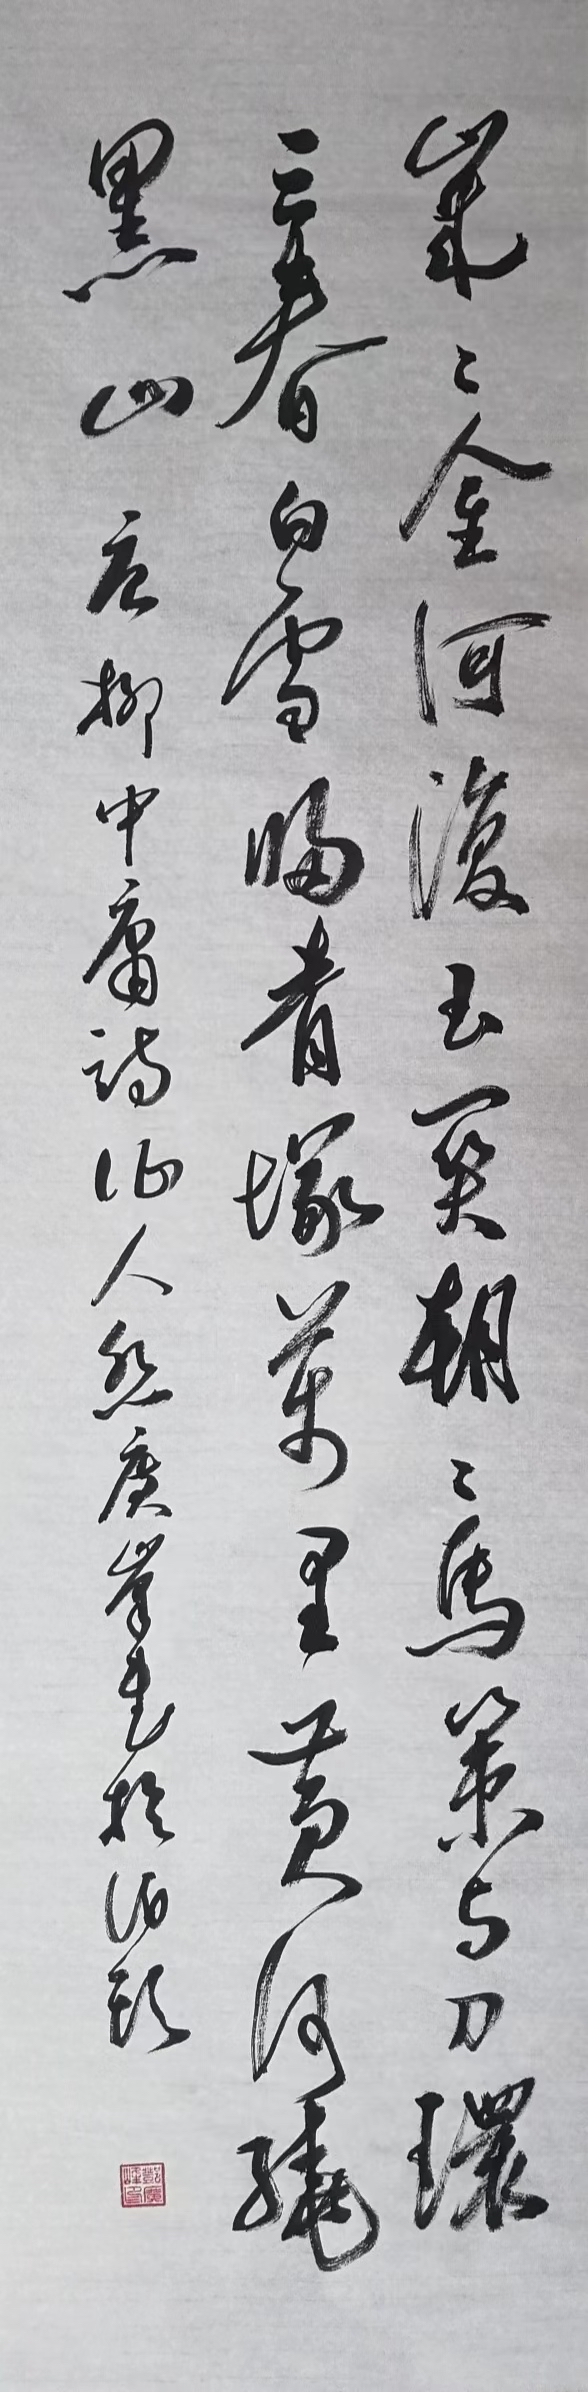 歲〻金河復玉関朝〻馬策与刀環
三春白雪歸青塚萬里黄河繞
黑山 唐柳中庸詩征人怨廣峯書於泊頭